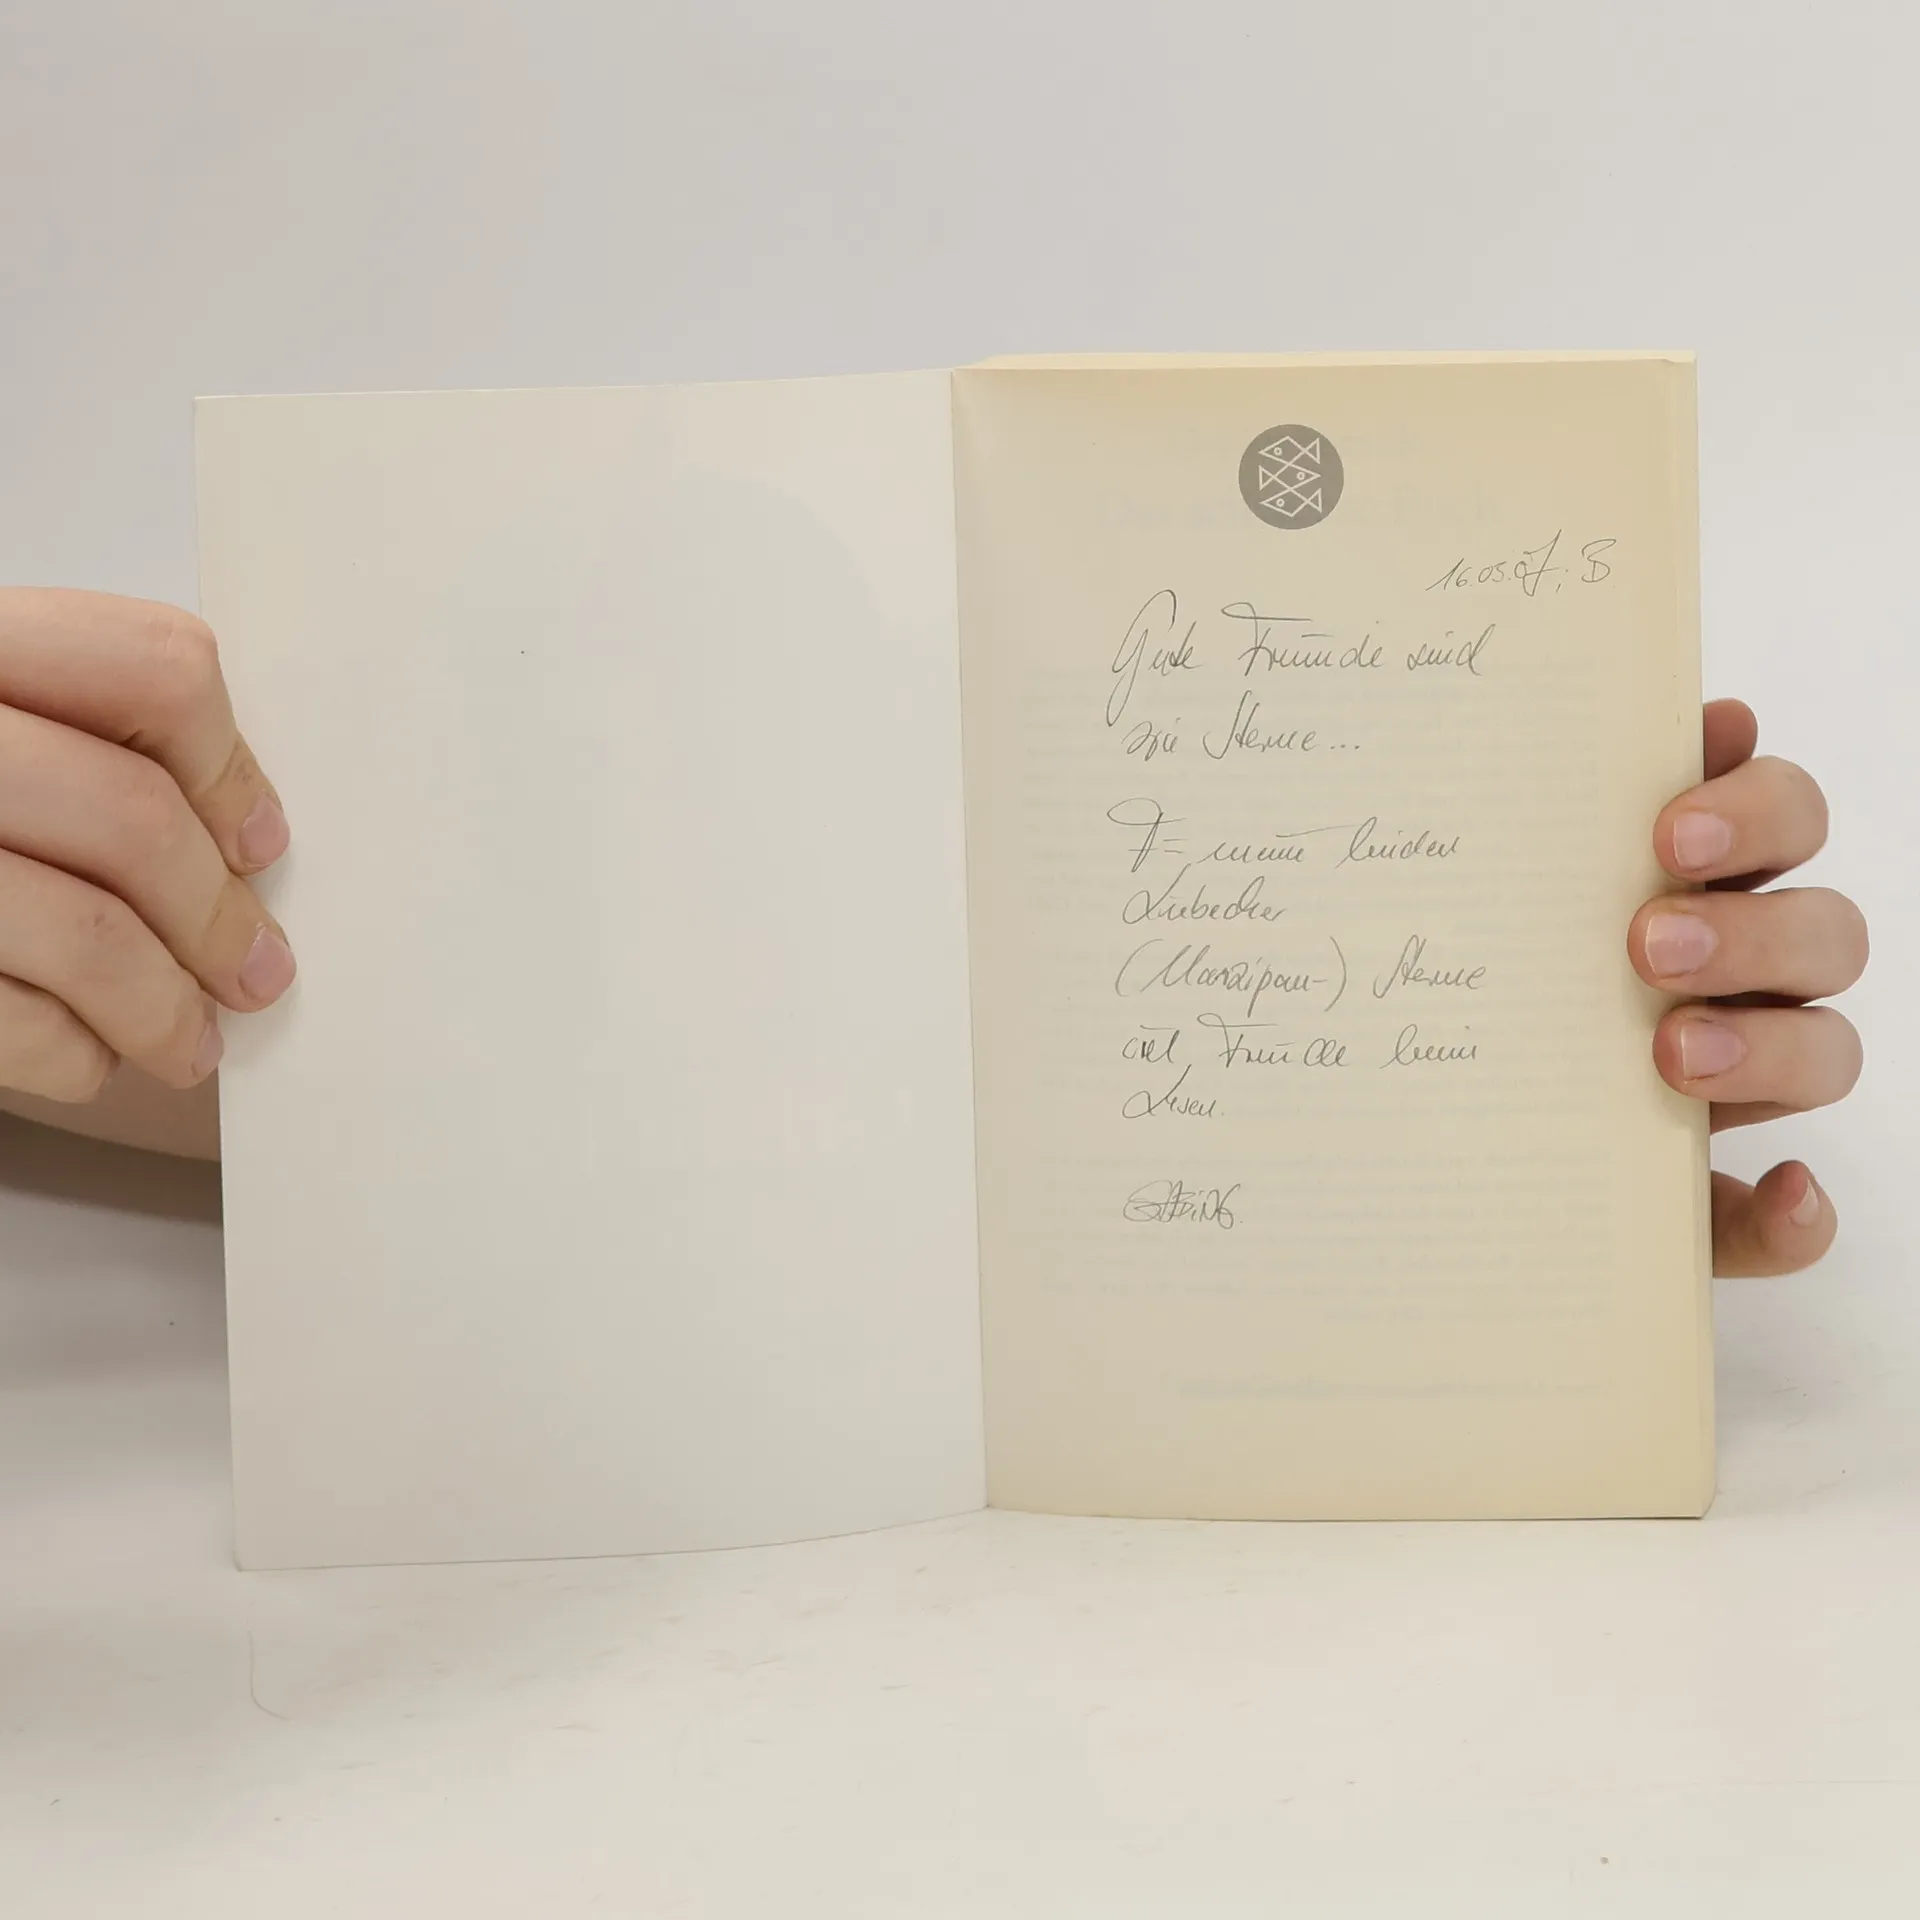 16.05.07; B.
Gute Freunde sind
wie Sterne...
F= meine beiden
Lübecker
(Marzipan-) Sterne
viel Freude beim
Lesen.